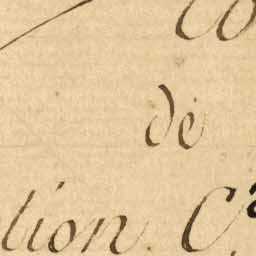 Co
de
tion C.a